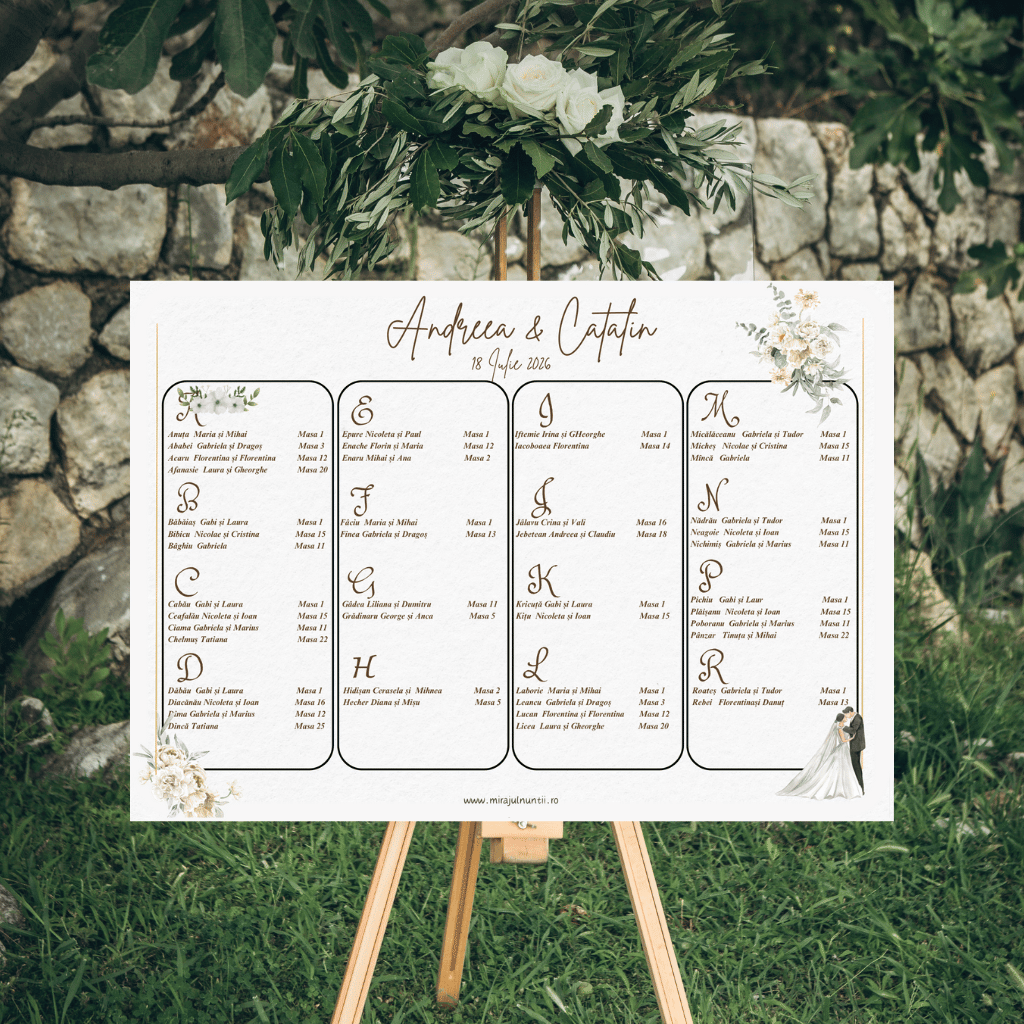 Andreea & Catalin
18 Iulie 2026
A
Anuța Maria și Mihai Masa 1
Ababei Gabriela și Dragoș Masa 3
Acaru Florentina și Florentina Masa 12
Afanasie Laura și Gheorghe Masa 20
B
Băbăiaș Gabi și Laura Masa 1
Bibicu Nicolae și Cristina Masa 15
Băghiu Gabriela Masa 11
C
Cabău Gabi și Laura Masa 1
Ceafalău Nicoleta și Ioan Masa 15
Ciama Gabriela și Marius Masa 11
Chelmuș Tatiana Masa 22
D
Dăbău Gabi și Laura Masa 1
Diacănău Nicoleta și Ioan Masa 16
Dima Gabriela și Marius Masa 12
Dincă Tatiana Masa 25
E
Epure Nicoleta și Paul Masa 1
Enache Florin și Maria Masa 12
Enaru Mihai și Ana Masa 2
F
Fâciu Maria și Mihai Masa 1
Finea Gabriela și Dragoș Masa 13
G
Gâdea Liliana și Dumitru Masa 11
Grădinaru George și Anca Masa 5
H
Hidișan Cerasela și Mihnea Masa 2
Hecher Diana și Mișu Masa 5
I
Iftemie Irina și GHeorghe Masa 1
Iacoboaea Florentina Masa 14
J
Jălavu Crina și Vali Masa 16
Jebetean Andreea și Claudiu Masa 18
K
Kricuță Gabi și Laura Masa 1
Kițu Nicoleta și Ioan Masa 15
L
Laborie Maria și Mihai Masa 1
Leancu Gabriela și Dragoș Masa 3
Lucan Florentina și Florentina Masa 12
Licea Laura și Gheorghe Masa 20
M
Micălăceanu Gabriela și Tudor Masa 1
Micheș Nicolae și Cristina Masa 15
Mîncă Gabriela Masa 11
N
Nădrău Gabriela și Tudor Masa 1
Neagoie Nicoleta și Ioan Masa 15
Nichimiș Gabriela și Marius Masa 11
P
Pichiu Gabi și Laur Masa 1
Plăișanu Nicoleta și Ioan Masa 15
Poboranu Gabriela și Marius Masa 11
Pânzar Tinuța și Mihai Masa 22
R
Roateș Gabriela și Tudor Masa 1
Rebei Florentinași Danuț Masa 13
www.mirajulnuntii.ro